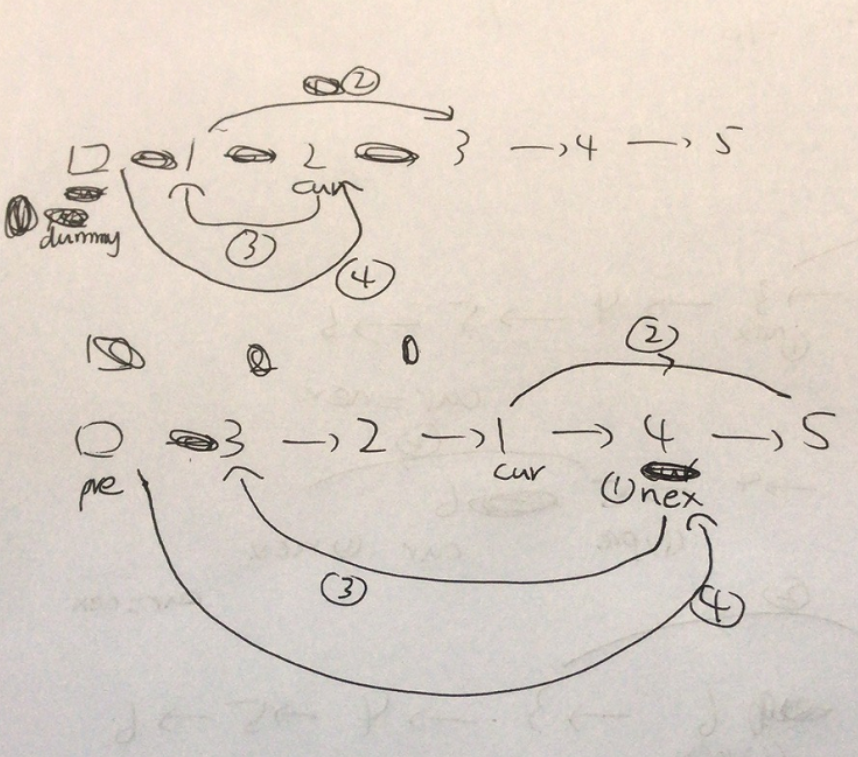 ②
1 2 3 → 4 → 5
cur
dummy
③
④
②
3 → 2 → 1 → 4 → 5
pre cur ① nex
③
④